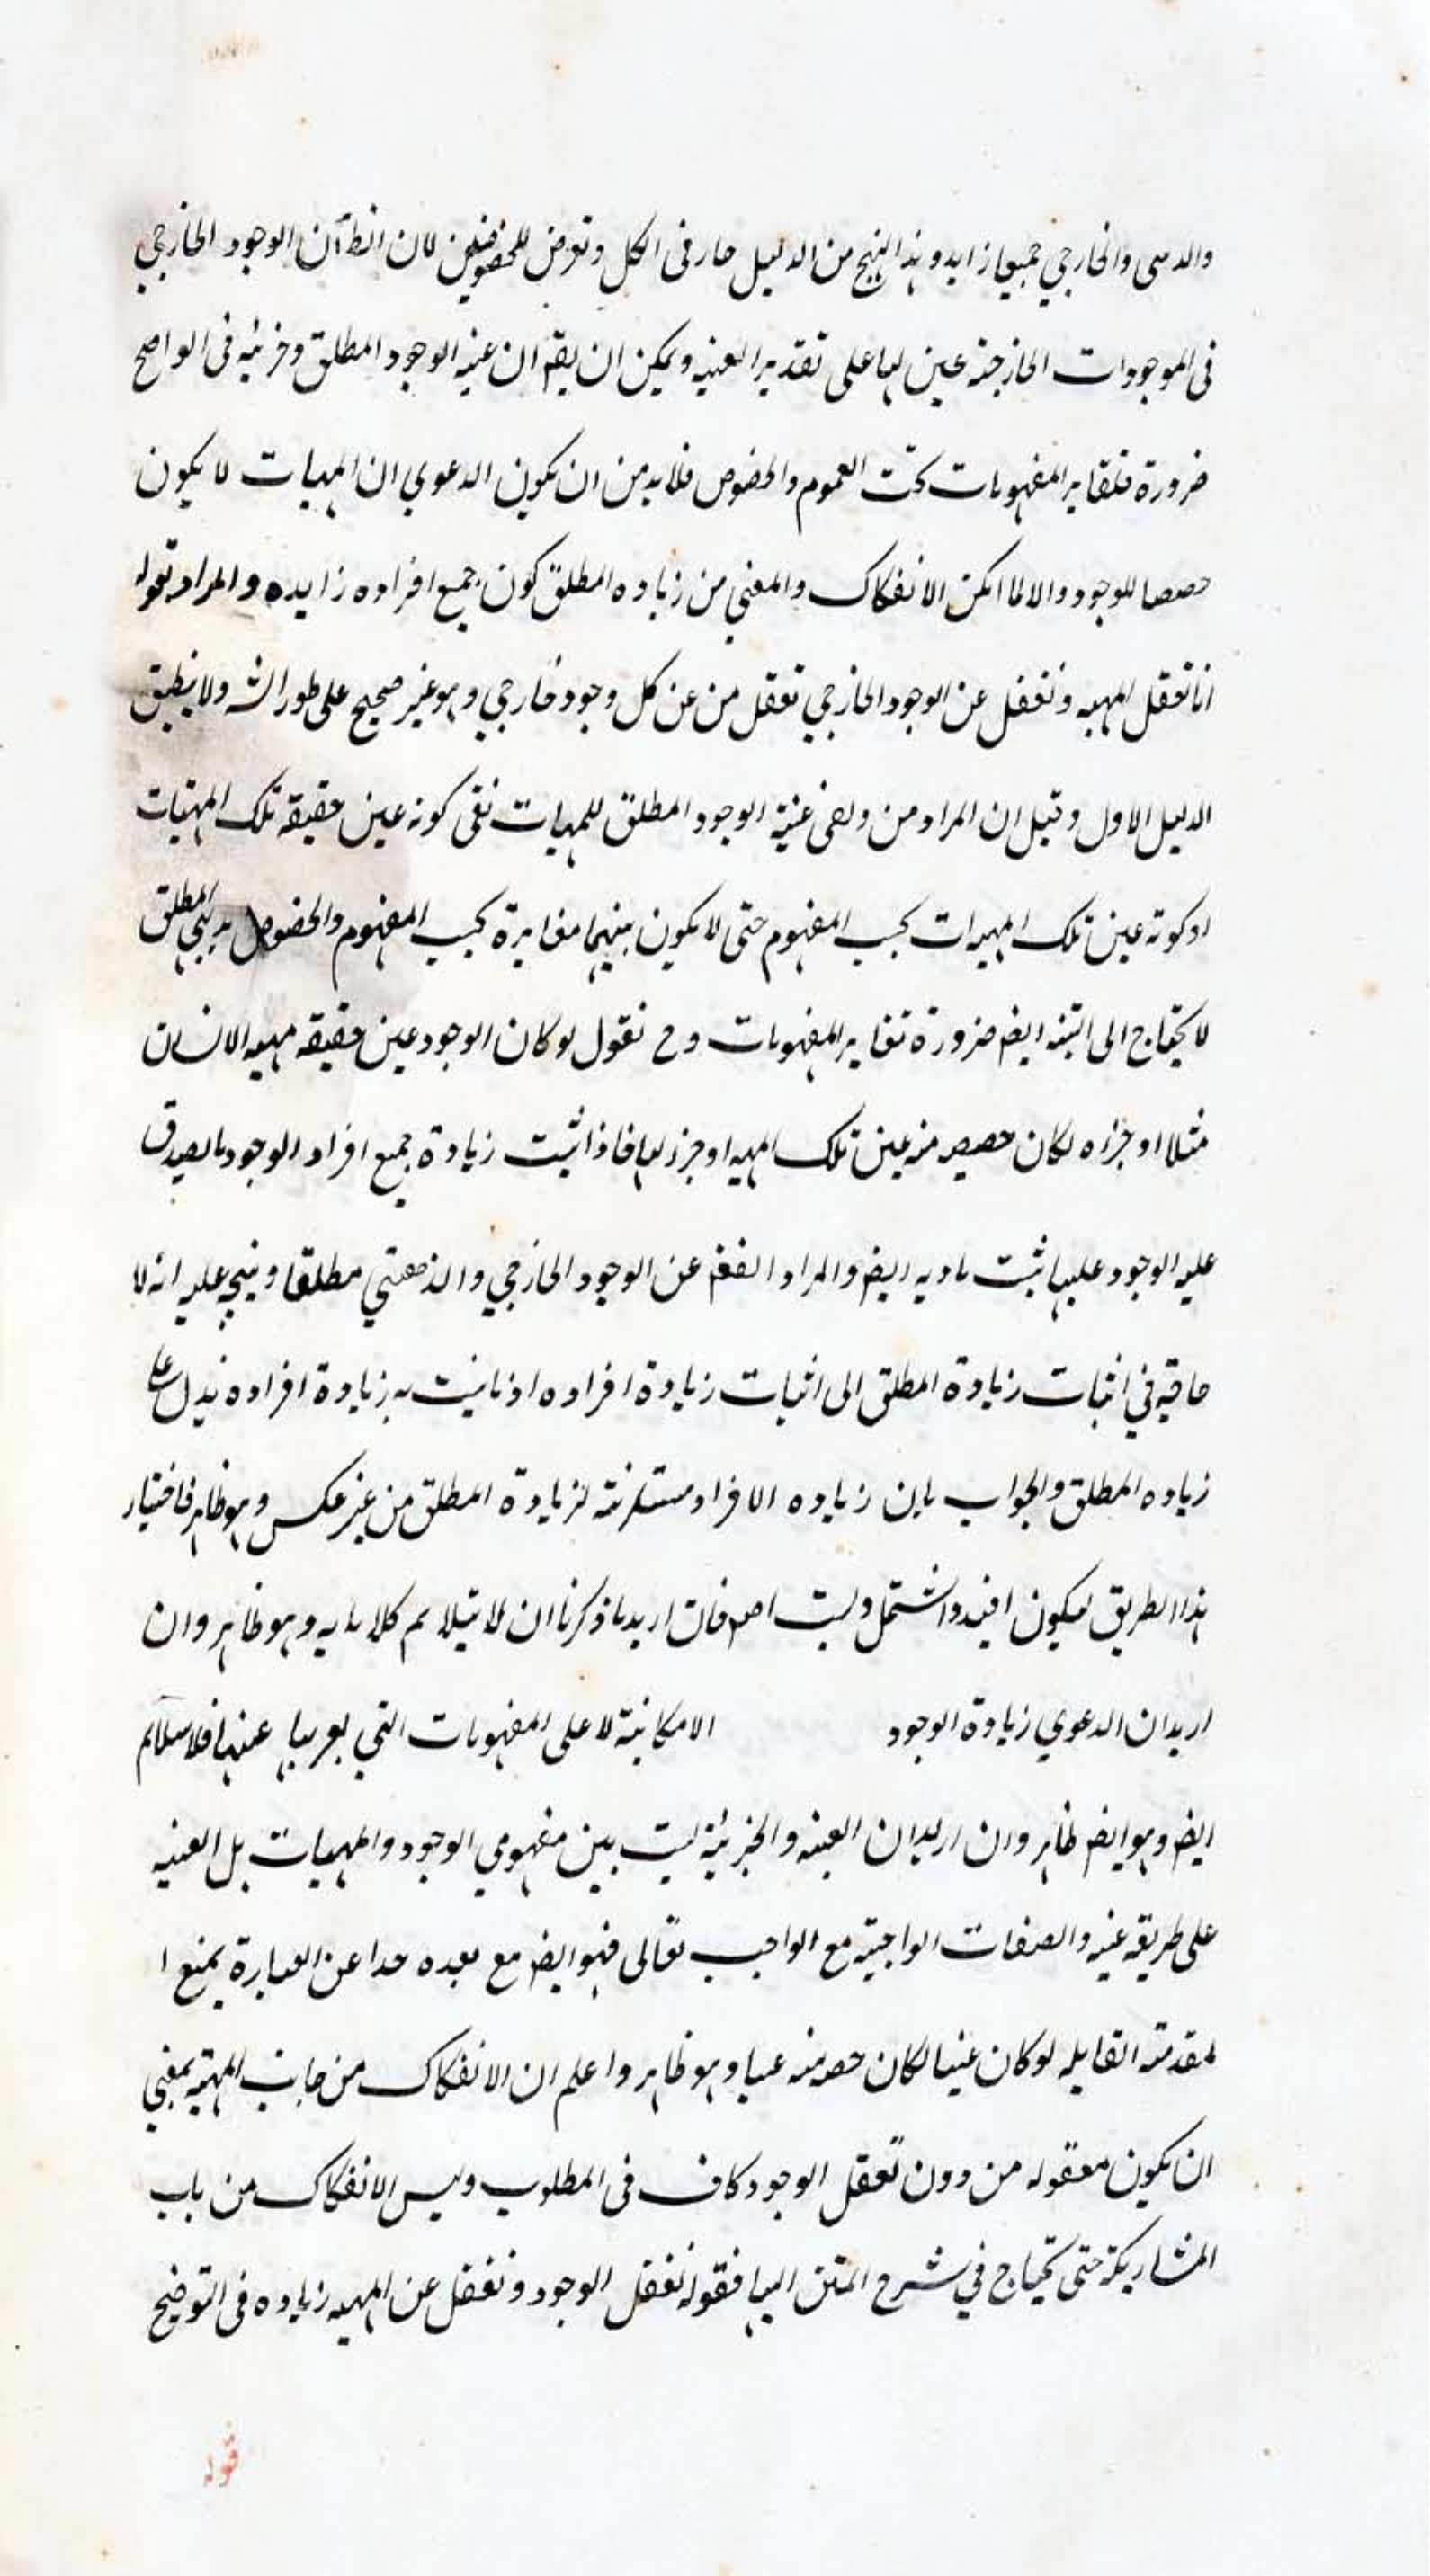 والذهني والخارجي جميعا زايد وهذا النهج من الدليل جار في الكل وتعرض للخصوص لان الظ ان الوجود الخارجي
في الموجودات الخارجية عين لها على تقدير العينية ويمكن ان يقم ان عينية الوجود المطلق وجزئيه في الواضح
ضرورة تغاير المفهومات تحت العموم والخصوص فلا بد من ان يكون الدعوي ان المهيات لا يكون
حصصا للوجود والا لما امكن الانفكاك والمعني من زياده المطلق كون جميع افراده زايده والمراد بقوله
انا نعقل المهيه ونغفل عن الوجود الخارجي نغفل من عن كل وجود خارجي وهو غير صحيح على طور الش ولا ينطبق
الدليل الاول وقيل ان المراد من عينية الوجود المطلق للمهيات نفى كونه عين حقيقة تلك المهيات
او كونه عين تلك المهيات بحسب المفهوم حتى لا يكون بينهما مغايرة بحسب المفهوم والخصوص بديهي المطلق
لا يحتاج الى ايضم ضرورة تغاير المفهومات وح نقول لو كان الوجود عين حقيقه مهيه الانسان
مثلا او جزاه لكان حصصه منه عين تلك المهيه او جزء لها فاذا اثبت زيادة جميع افراد الوجود ما يصدق
عليه الوجود عليها ثبت ايضم والمراد عن الوجود الخارجي والذهني مطلقا ويتجه عليه انه لا
حاجة في اثبات زيادة المطلق الى اثبات زيادة افراده اذ به زيادة افراده يدل على
زياده المطلق والجواب بان زياده الافراد مستلزمة لزيادة المطلق من غير عكس وهو ظاهر فاختيار
هذا الطريق ليكون افيد واشتمل فان اريد ما ذكرنا ان لا يلايم كلامه وهو ظاهر وان
اريد ان الدعوي زيادة الوجود الامكانية لا على المفهومات التي يعبر بها عنها فلا يلايم
ايضم وهو ايضم ظاهر وان اريد ان العينه والجزئية ليست بين مفهومي الوجود والمهيات بل العينيه
على طريقه عينيه والصفات الواجبيه مع الواجب تعالى فهو ايضم مع بعده جدا عن العبارة يمنع ا
لمقدمة القايله لو كان عينا لكان حصه منه عينا وهو ظاهر واعلم ان الانفكاك من جانب المهية بمعني
ان يكون معقوله من دون تعقل الوجود كاف في المطلوب وليس الانفكاك من باب
المشاركة حتى يحتاج في شرح المتن اليها فقوله نعقل الوجود ونغفل عن المهيه زياده في التوضيح
قوله